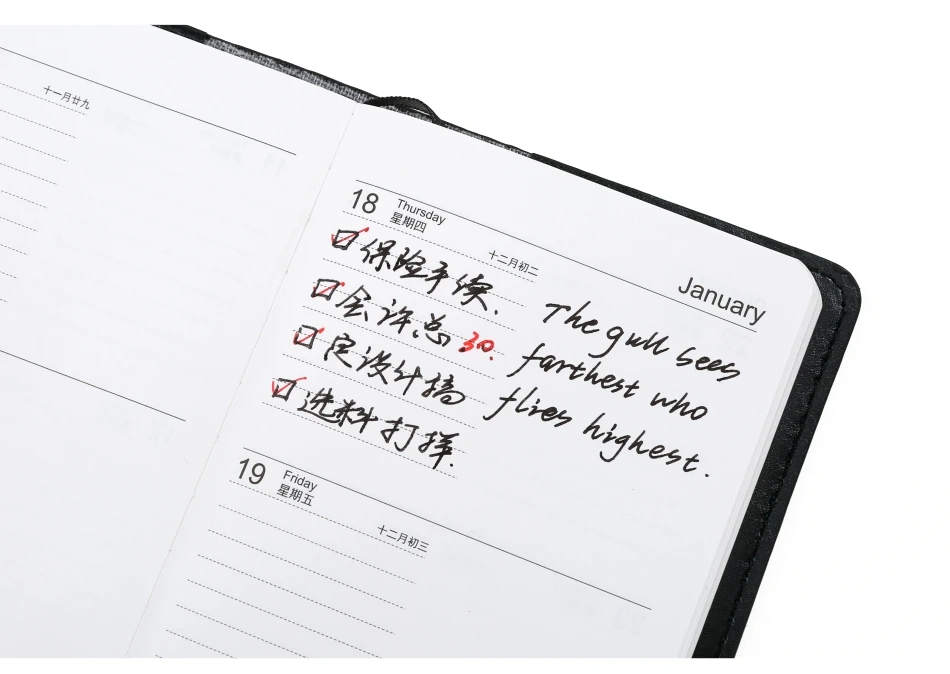 十一月廿九
18 Thursday
星期四
十二月初二
January
保险手续.
会许总 30.
定设计搞
选料打样.
The gull sees
farthest who
flies highest.
19 Friday
星期五
十二月初三